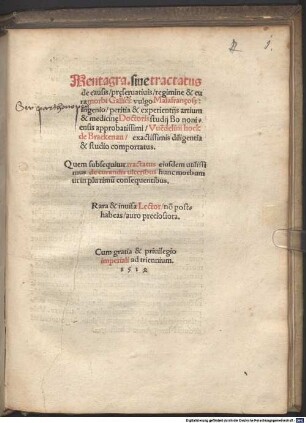 Mentagra, siue tractatus
de causis / preseruatiuis / regimine & cu
ra morbi Gallici: vulgo Malafrançosz:
ingenio / peritia & experientijs artium
& medicinę Doctoris studij Bononi
ensis approbatissimi / Vuendelini hock
de Brackenau / exactissimis diligentia
& studio comportatus.
Quem subsequitur tractatus eiusdem utilissi
mus de curandis ulceribus hunc morbum
ut in plurimū consequentibus.
Rara & inuisa Lector / nō posth
habeas / auro preciosiora.
Cum gratia & priuilegio
imperiali ad triennium.